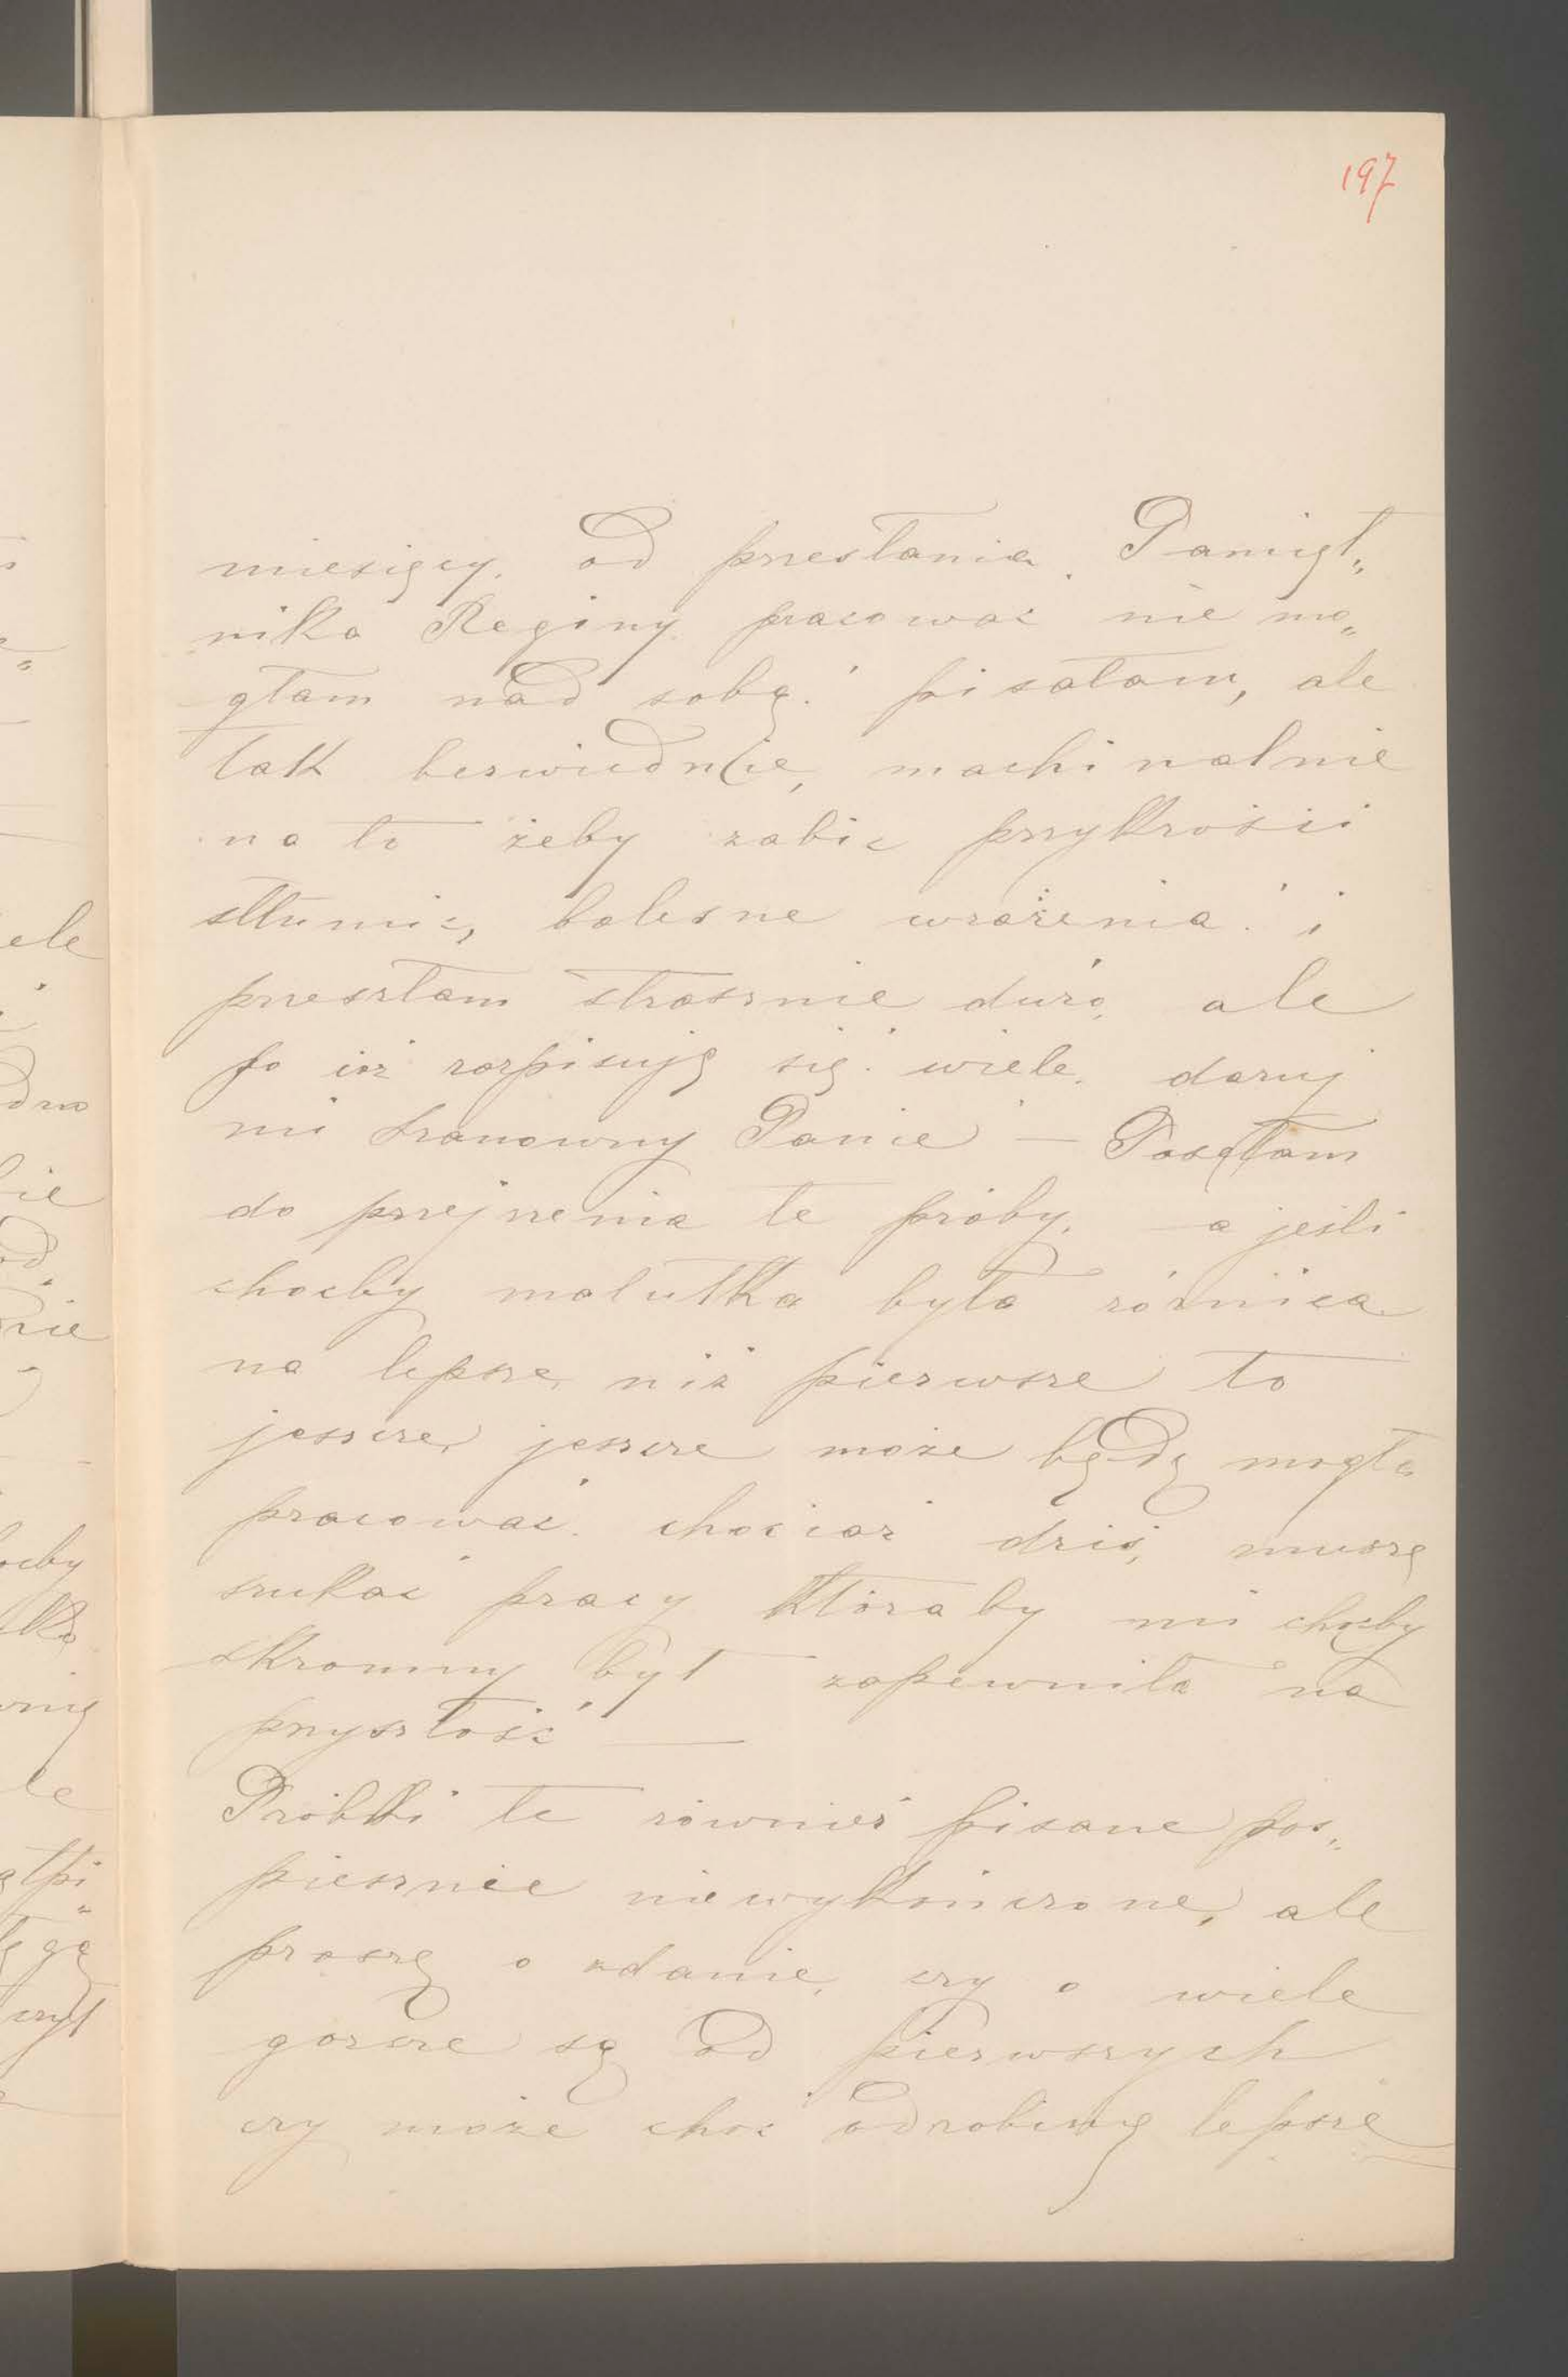 197
miesięcy. od przesłania Pamięt„
nika Reginy pracować nie mo„
głam nad sobą. pisałam, ale
tak bezwiednie, machinalnie
na to żeby zabić przykrości
stłumić, bolesne wrażenia. i
przeszłam strasznie dużo, ale
bo już rozpisuję się wiele. daruj
mi Szanowny Panie — Posyłam
do przejrzenia te próby, a jeśli
choćby malutka była różnica
na lepsze, niż pierwsze to
jeszcze, jeszcze może będę mogła
pracować. chociaż dziś, muszę
szukać pracy któraby mi choćby
skromny byt zapewniła na
przyszłość —
Próbki te również pisane pos„
piesznie niewykończone, ale
proszę o zdanie, czy o wiele
gorsze są od pierwszych
czy może choć odrobinę lepsze
ele